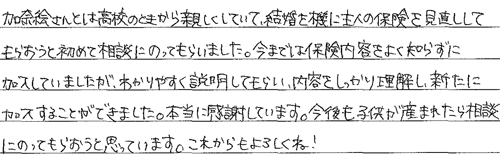 加奈絵さんとは高校のときから親しくしていて、結婚を機に主人の保険を見直しして
もらおうと初めて相談にのってもらいました。今までは保険内容をよく知らずに
加入していましたが、わかりやすく説明してもらい、内容をしっかり理解し、新たに
加入することができました。本当に感謝しています。今後も子供が産まれたら相談
にのってもらおうと思っています。これからもよろしくね！